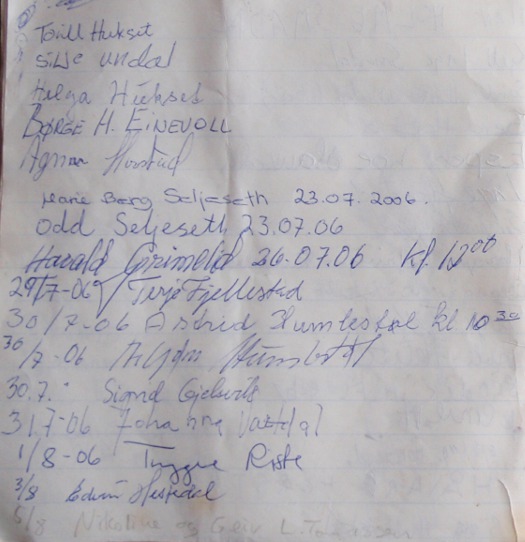 Torill Hukset
Silje undal
Helga Hukset
BØRGE H. EINEVOLL
Agnar
Marie Berg Seljeseth 23.07.2006.
Odd Seljeseth 23.07.06
Harald Grimelid 26.07.06 kl. 12 00
29/7-06 Terje Fjellestad
30/7-06 Astrid Humlestøl kl 10 30
30/7-06
30.7. Sigrid
31.7-06 Johanne Vatsdal
1/8-06 Tryggve Riste
3/8 Edwin
5/8 Nikoline og Geir L.